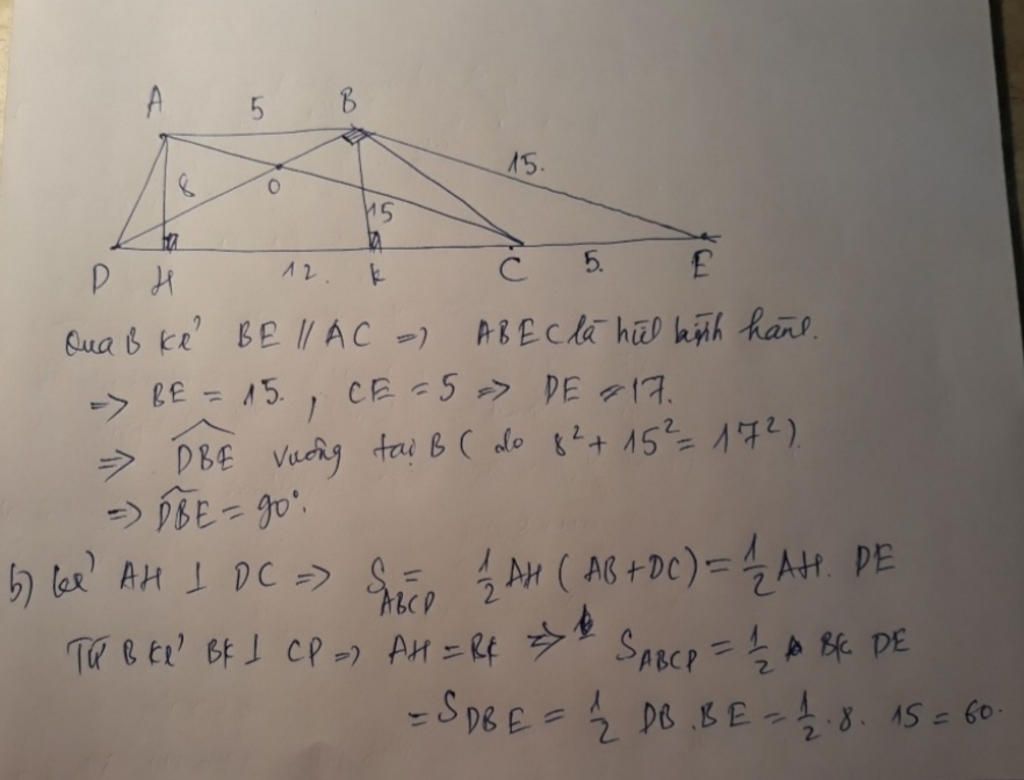 A 5 B
8 O 15 15.
D H 12. K C 5. E
Qua B kẻ BE // AC => ABEC là hình bình hành.
=> BE = 15. , CE = 5 => DE = 17.
=> DBE vuông tại B ( do 8² + 15² = 17² )
=> DBE = 90°.
b) kẻ AH ⊥ DC => S ABCD = 1/2 AH ( AB + DC ) = 1/2 AH. DE
Từ B kẻ BK ⊥ CD => AH = BK => S ABCD = 1/2 BK DE
= S DBE = 1/2 DB . BE = 1/2 . 8 . 15 = 60.